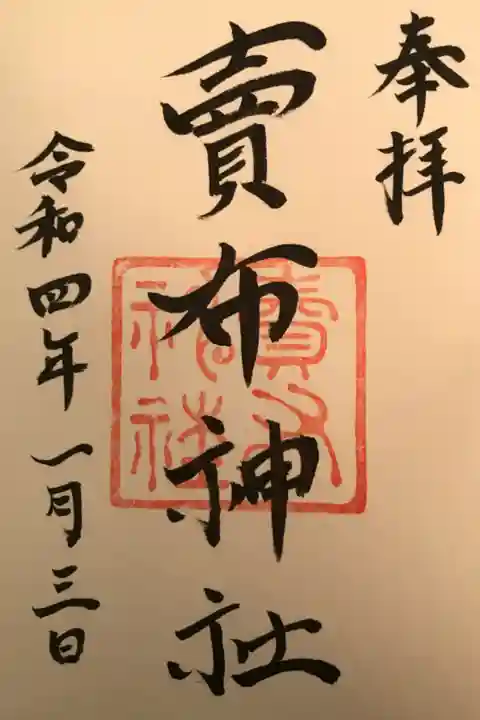 奉拝
賣布神社
賣布
神社
令和四年一月三日